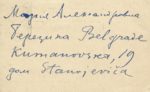 Мария Александровна
Терещина Belgrade
Kumanovska, 19
дом Stanojevića